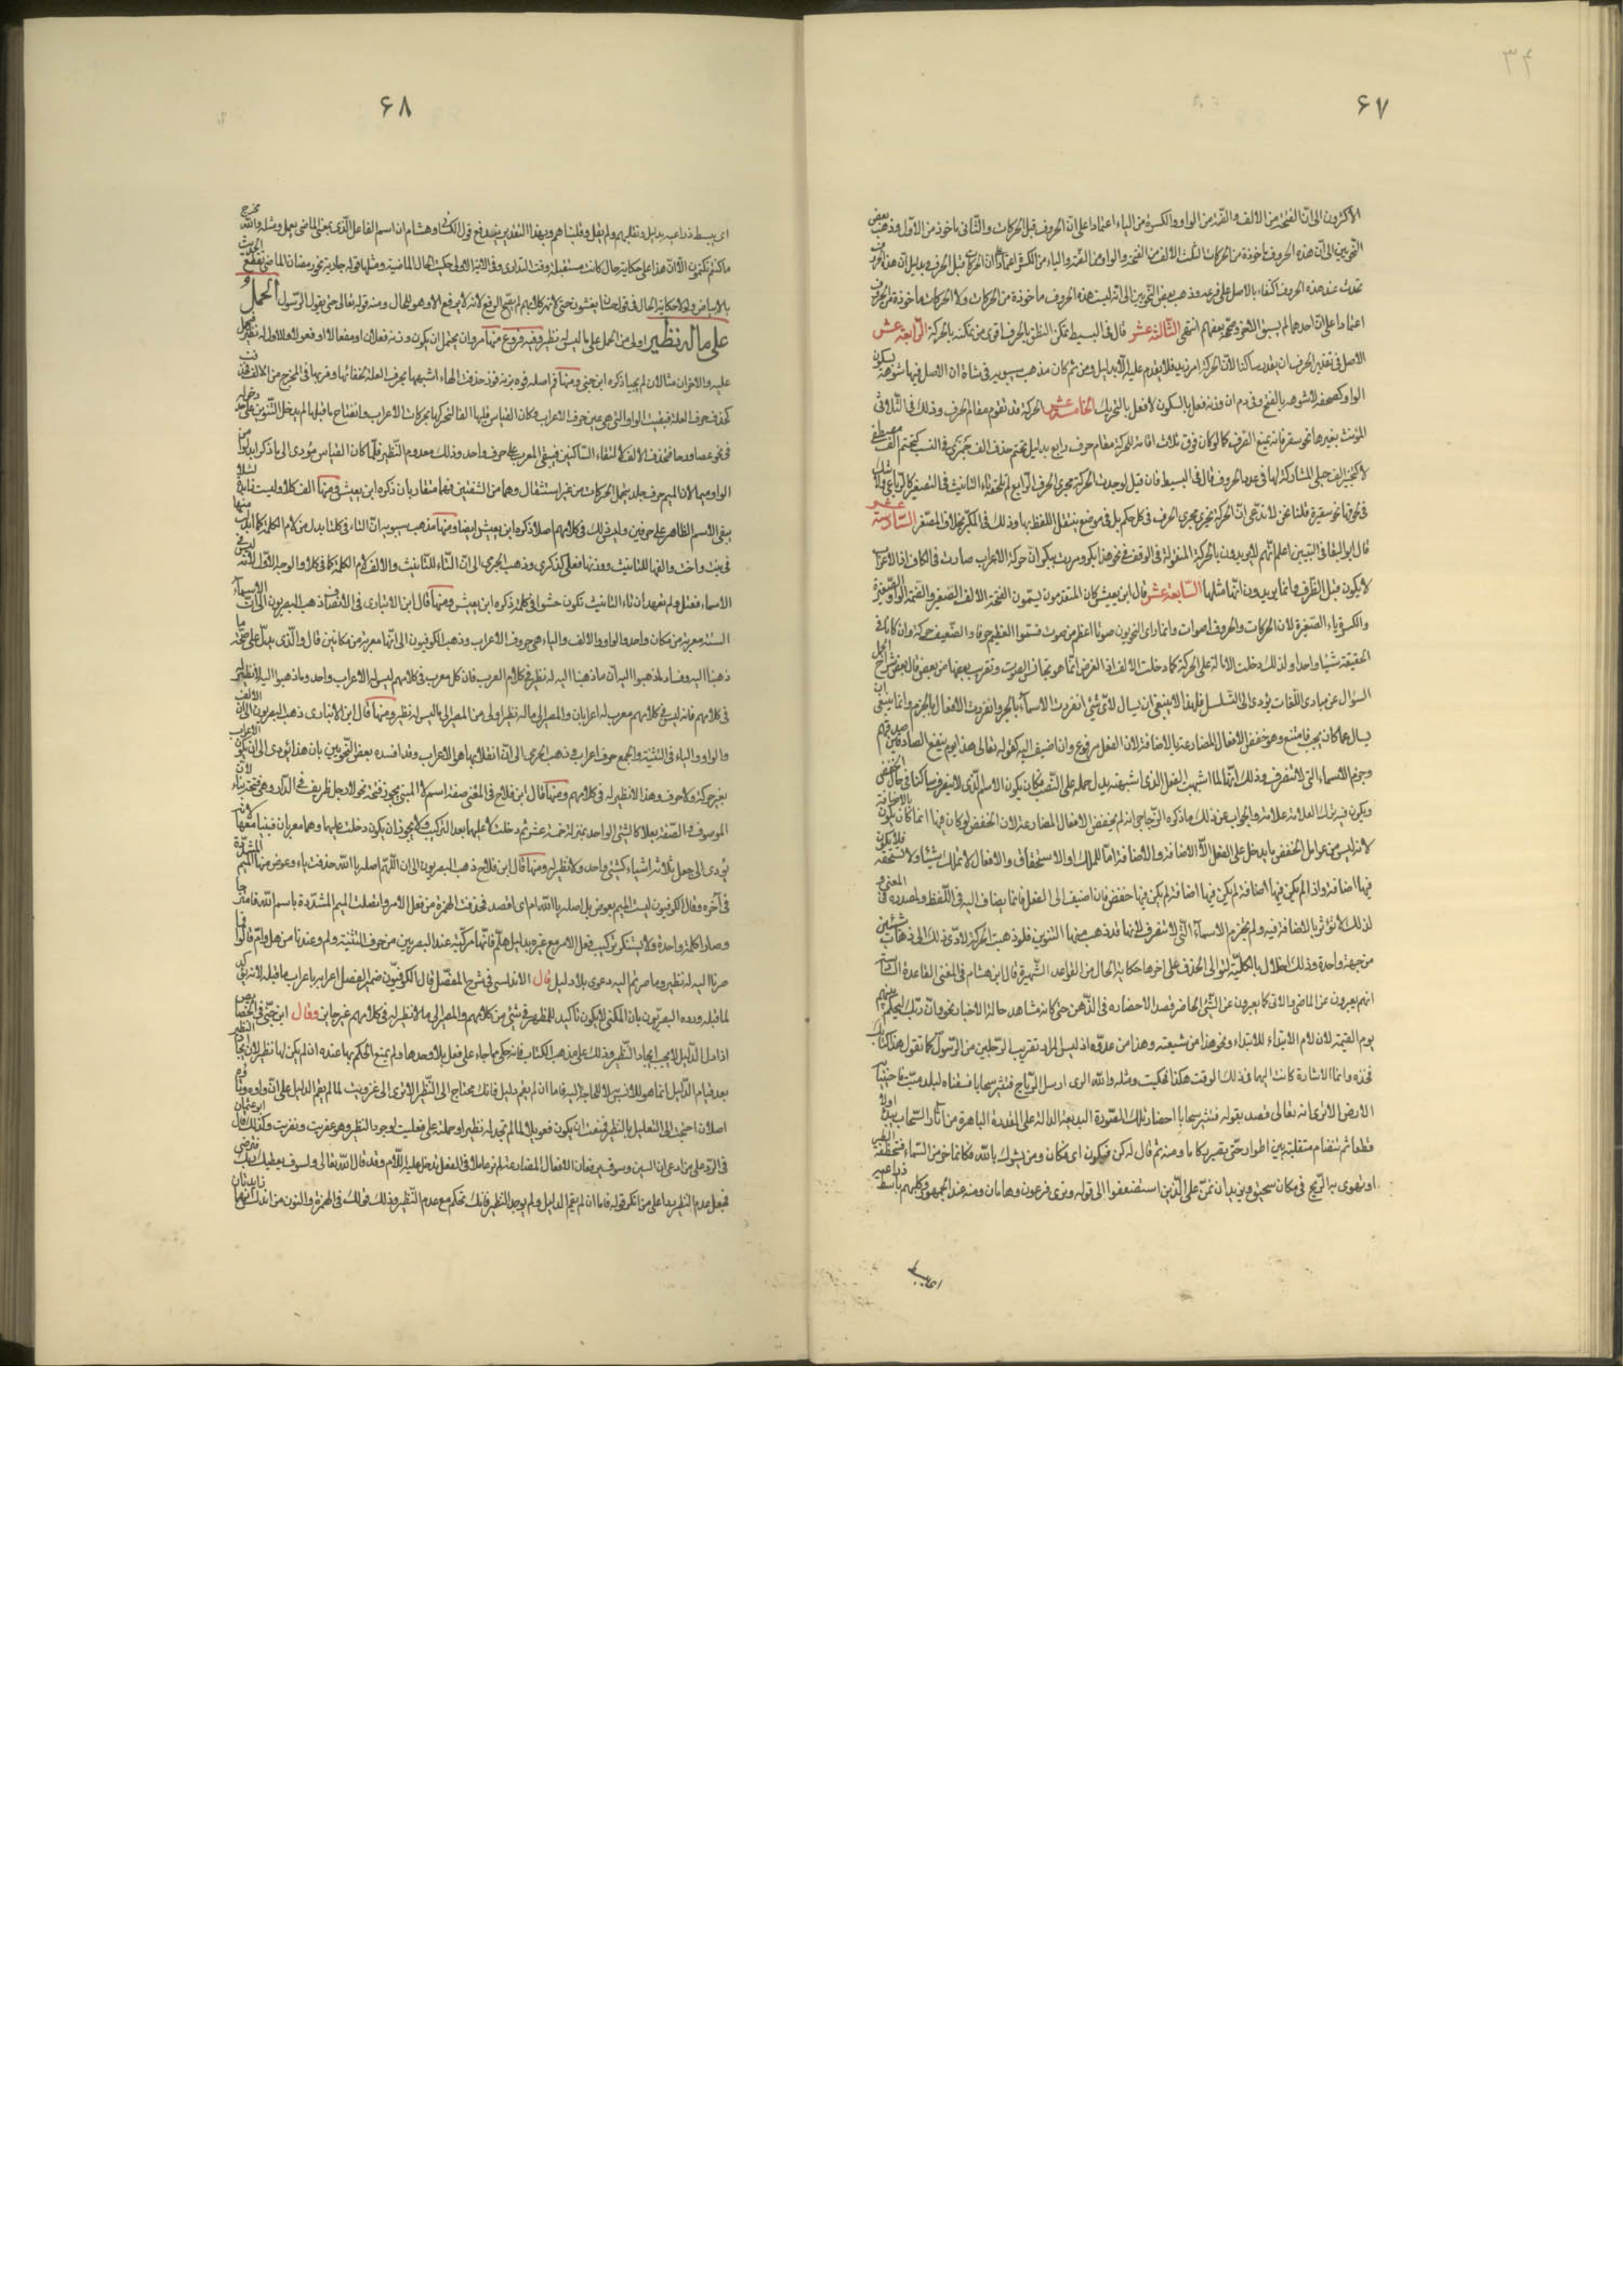 ۳۴
۶۷
الاکثرون الى انّ الفتحة من الالف والضمّة من الواو والکسرة من الیاء اعتمادا على انّ الحروف قبل الحرکات والثّانى مأخوذ من الاوّل وذهب بعض
النّحویین الى انّ هذه الحروف مأخوذة من الحرکات الثّلث الالف من الفتحة والواو من الضمّة والیاء من الکسرة اعتمادا على انّ الحرکات قبل الحروف وبدلیل انّ هذه الحروف
تحدث عند هذه الحروف اکتفاء بالاصل على فرعه وذهب بعض النّحویین الى انّه لیست هذه الحروف مأخوذة من الحرکات ولا الحرکات مأخوذة من الحروف
اعتمادا على انّ احدهما لم یسبق الاخر وصحّحه بعضهم انتهى الثّالثة عشر قال فى البسیط تمکّن النطق بالحرف اقوى من تمکّنه بالحرکة الرّابعة عشر
الاصل فى تقدیر الحرف ان یقدر ساکنا لانّ الحرکة امر زید فلا یقدم علیه الّا بدلیل ومن ثم کان مذهب سیبویه فى شاة ان الاصل فیها شوهة بسکون
الواو کصحفة لا شوهة بالفتح وفى دم ان وزنه فعل بالسکون لا فعل بالتحریک الخامسة عشر الحرکة قد تقوم مقام الحرف وذلک فى الثّلاثى
المؤنث بغیرها نحو سقر فانه یمنع الصّرف کما لو کان فوق ثلاث اقامة للحرکة مقام حرف رابع بدلیل تحتم حذف الف جمزى فى النسب کتحتم الف مصطفى
لا کتخییر الف حبلى المشارکة لها فى عدد الحروف قال فى البسیط فان قیل لو جرت الحرکة مجرى الحرف الرّابع لم تلحقه تاء التانیث فى التصغیر کالرّباعى ولا شک
فى لحوقها نحو سقیرة قلنا نحن لا ندّعى انّ الحرکة تجرى مجرى الحرف فى کل حکم بل فى موضع یثقل اللفظ بها وذلک فى المکبّر بخلاف المصغّر السّادسة عشر
قال ابو البقا فى التبیین اعلم انّهم لا یریدون بالحرکة المنقولة فى الوقف فى نحو هذا بکر ومررت ببکر ان حرکة الاعراب صارت فى الکاف اذ الاعراب
لا یکون قبل الطرف وانما یریدون انّها مثلها السّابعة عشر قال ابن یعیش کان المتقدمون یسمّون الفتحة الالف الصّغیرة والضمّة الواو الصّغیرة
والکسرة یاء الصّغیرة لان الحرکات والحروف اصوات وانما راى النحویون صوتا اعظم من صوت فسمّوا العظیم حرفا والضّعیف حرکة وان کانا فى
الحقیقة شیئا واحدا ولذلک دخلت الامالة على الحرکة کما دخلت الالف اذ الغرض انّما هو تجانس الصوت وتقریب بعضها من بعض قال بعض شراح الجمل
السؤال عن مبادى اللّغات یؤدى الى التّسلسل فلهذا لا ینبغى ان یسال لاى شئ انفردت الاسماء بالجر وانفردت الافعال بالجزم وانما ینبغى ان
یسال عما کان یجب فامتنع وهو خفض الافعال المضارعة بالاضافة لان الفعل مرفوع وان اضیف الیه کقوله تعالى هذا یوم ینفع الصادقین صدقهم
وجزم الاسماء التى لا تنصرف وذلک انّها لما اشبهت الفعل الذى اشبهته بدل حمله على النّصب فکان یکون الاسم الّذى لا ینصرف ساکنا فى حال الخفض
ویکون فیه ترک العلامة علامة والجواب عن ذلک ما ذکره الزّجاجى انه لم یخفض الافعال المضارعة لان الخفض لو کان فیها انما کان یکون بالاضافة
لانّه لیس من عوامل الخفض ما یدخل على الفعل الّا الاضافة والاضافة امّا للملک او الاستحقاق والافعال لا تملک شیئا ولا تستحقه فلا یکون
فیها اضافة واذا لم یکن فیها اضافة لم یکن فیها خفض فان اضیف الى الفعل فانما یضاف الیه فى اللّفظ ومصدره فى المعنى
لذلک لا تؤثر بالاضافة فیه ولم تجزم الاسماء الّتى لا تنصرف لانها قد ذهب منها التنوین فلو ذهبت الحرکة لادّى ذلک الى ذهاب شیئین
من جهة واحدة وذلک اخلال بالکلمة لتوالى الحذف على اخرها حکایة الحال من القواعد الشّهیرة قال ابن هشام فى المغنى القاعدة السّادسة
انهم یعبرون عن الماضى والاتى کما یعبرون عن الشّئ الحاضر قصدا لاحضاره فى الذّهن حتى کانه مشاهد حالة الاخبار نحو وانّ ربّک لیحکم بینهم
یوم القیمة لان لام الابتداء للابتداء ونحو هذا من شیعته وهذا من عدوّه اذ لیس المراد تقریب الرّجلین من الرّسول کما تقول هذا کتابک
فخذه وانما الاشارة کانت الیهما فى ذلک الوقت هکذا فحکیت ومثله والله الذى ارسل الرّیاح فتثیر سحابا فسقناه لبلد میّت فاحیینا به
الارض الا ترى انه تعالى قصد بقوله فتثیر سحابا احضار تلک الصّورة البدیعة الدالة على القدرة الباهرة من اثارة السّحاب یبدو اولا
قطعا ثم تتضام متقلبة بین اطوار حتّى تصیر رکاما ومنه ثم قال له کن فیکون اى فکان ومن یشرک بالله فکانما خر من السّماء فتخطفه الطیر
او تهوى به الرّیح فى مکان سحیق ونرید ان نمنّ على الّذین استضعفوا الى قوله ونرى فرعون وهامان ومنه عند الجمهور وکلبهم باسط ذراعیه
اى یبسط
۶۸
اى یبسط ذراعیه بدلیل ونقلبهم ولم یقل وقلبناهم وبهذا التقدیر یندفع قول الکسائى وهشام ان اسم الفاعل الّذى بمعنى الماضى یعمل ومثله والله مخرج
ما کنتم تکتمون الّا انّ هذا على حکایة حال کانت مستقبلة وقت التدارى وفى الایة الاولى حکیت الحال الماضیة ومثلها قوله جاریة فى رمضان الماضى تقطع الحدیث
بالایماض ولولا حکایة الحال فى قول حسّان یغشون حتى لا تهر کلابهم لم یصح الرفع لانه لا یرفع الا وهو للحال ومنه قوله تعالى حتى یقول الرّسول الحمل
على ما له نظیر اولى من الحمل على ما لیس له نظیر وفیه فروع منها مروان یحتمل ان یکون وزنه فعلان او مفعالا او فعوالا والاول له نظیر فیحمل
علیه والاخران مثالان لم یجیئا ذکره ابن جنى ومنها فم اصله فوه بزنة فوز حذفت الهاء لشبهها بحرف العلة لخفائها وقربها فى المخرج من الالف فحذفت
کحذف حرف العلة فبقیت الواو التى هى عین حرف الاعراب وکان القیاس قلبها الفا لتحرکها بحرکات الاعراب وانفتاح ما قبلها ثم یدخل التّنوین على حد دخوله
فى نحو عصا ورحا فتحذف الالف لالتقاء السّاکنین فیبقى المعرب على حرف واحد وذلک معدوم النّظیر فلمّا کان القیاس یؤدى الى ما ذکر ابدلوا من
الواو میما لان المیم حرف جلد یتحمل الحرکات من غیر استثقال وهما من الشفتین فهما متقاربان ذکره ابن یعیش ومنها الف کلا ولیست زائدة لئلا
یبقى الاسم الظاهر على حرفین ولیس ذلک فى کلامهم اصلا ذکره ابن یعیش ایضا ومنها مذهب سیبویه انّ التاء فى کلتا بدل من لام الکلمة کما ابدلت منها
فى بنت واخت والفها للتانیث ووزنها فعلى کذکرى وذهب الجرمى الى انّ التّاء للتّانیث والالف لام الکلمة کما فى کلا والوجه الاوّل لانّه لیس فى
الاسماء فعتل ولم نعهد ان تاء التانیث تکون حشوا فى کلمة ذکره ابن یعیش ومنها قال ابن الانبارى فى الانصاف ذهب البصریون الى انّ الاسماء
الستة معربة من مکان واحد والواو والالف والیاء هى حروف الاعراب وذهب الکوفیون الى انّها معربة من مکانین قال والّذى یدلّ على صحّة ما
ذهبنا الیه وفساد ما ذهبوا الیه انّ ما ذهبنا الیه له نظیر فى کلام العرب فان کل معرب فى کلامهم لیس له الا اعراب واحد وما ذهبوا الیه لا نظیر له
فى کلامهم فانه لیس فى کلامهم معرب له اعرابان والمصیر الى ما له نظیر اولى من المصیر الى ما لیس له نظیر ومنها قال ابن الانبارى ذهب البصریون الى انّ الالف
والواو والیاء فى التثنیة والجمع حروف اعراب وذهب الجرمى الى انّ انقلابها هو الاعراب وقد افسده بعض النّحویین بان هذا یؤدى الى ان یکون الاعراب
بغیر حرکة ولا حرف وهذا لا نظیر له فى کلامهم ومنها قال ابن فلاح فى المغنى صفة اسم لا المبنى یجوز فتحه نحو لا رجل ظریف فى الدّار وهى فتحة بناء لانّ
الموصوف والصّفة جعلا کالشّئ الواحد بمنزلة خمسة عشر ثم دخلت لا علیهما بعد الترکیب ولا یجوز ان یکون دخلت علیهما وهما معربان فبنیا معها لانه
یؤدى الى جعل ثلاثة اشیاء کشئ واحد ولا نظیر له ومنها قال ابن فلاح ذهب البصریون الى ان اللّهم اصله یا الله حذفت یاء وعوض منها المیم المشدّدة
فى آخره وقال الکوفیون لیست المیم بعوض بل اصله یا الله ام اى اقصد فحذفت الهمزة من فعل الامر واتصلت المیم المشدّدة باسم الله فامتزجا
وصارا کلمة واحدة ولا یستنکر ترکیب فعل الامر مع غیره بدلیل هلّم فانّها مرکّبة عند البصریین من حرف التنبیه ولمّ وعندنا من هل وامّ قالوا فما
صرنا الیه له نظیر وما صرتم الیه دعوى بلا دلیل قال الاندلسى فى شرح المفصّل قال الکوفیّون ضمیر الفصل اعرابه باعراب ما قبله لانه توکید
لما قبله وردّه البصریّون بان المکنى لا یکون تأکید للمظهر فى شئ من کلامهم والمصیر الى ما لا نظیر له فى کلامهم غیر جایز وقال ابن جنّى فى الخصائص
اذا دلّ الدّلیل لا یجب ایجاد النّظیر وذلک على مذهب الکتاب فانه حکى مما جاء على فعل بلا وحدها ولم یمنع الحکم بها عنده ان لم یکن لها نظیر لان ایجاد النظیر
بعد قیام الدّلیل انما هو للانس به لا للحاجة الیه فاما ان لم یقم دلیل فانک محتاج الى النّظیر الا ترى الى عزویت لما لم یقم الدلیل على انّ واوه وتاءه
اصلان احتجت الى التعلیل بالنظیر فمنعت ان یکون فعویلا لما لم تجد له نظیرا وحملته على فعلیت لوجود النظیر وهو عفریت ونفریت وکذلک قال ابو عثمان
فى الرّد على من ادعى ان السین وسوف یرفعان الافعال المضارعة لم نر عاملا فى الفعل تدخل علیه اللّام وقد قال الله تعالى ولسوف یعطیک ربّک فترضى
فجعل عدم النظیر ردّا على من انکر قوله فاما ان لم یقم الدلیل ولم یوجد النظیر فانک تحکم مع عدم النّظیر وذلک قولک فى الهمزة والنون من اندلس انهما زایدتان